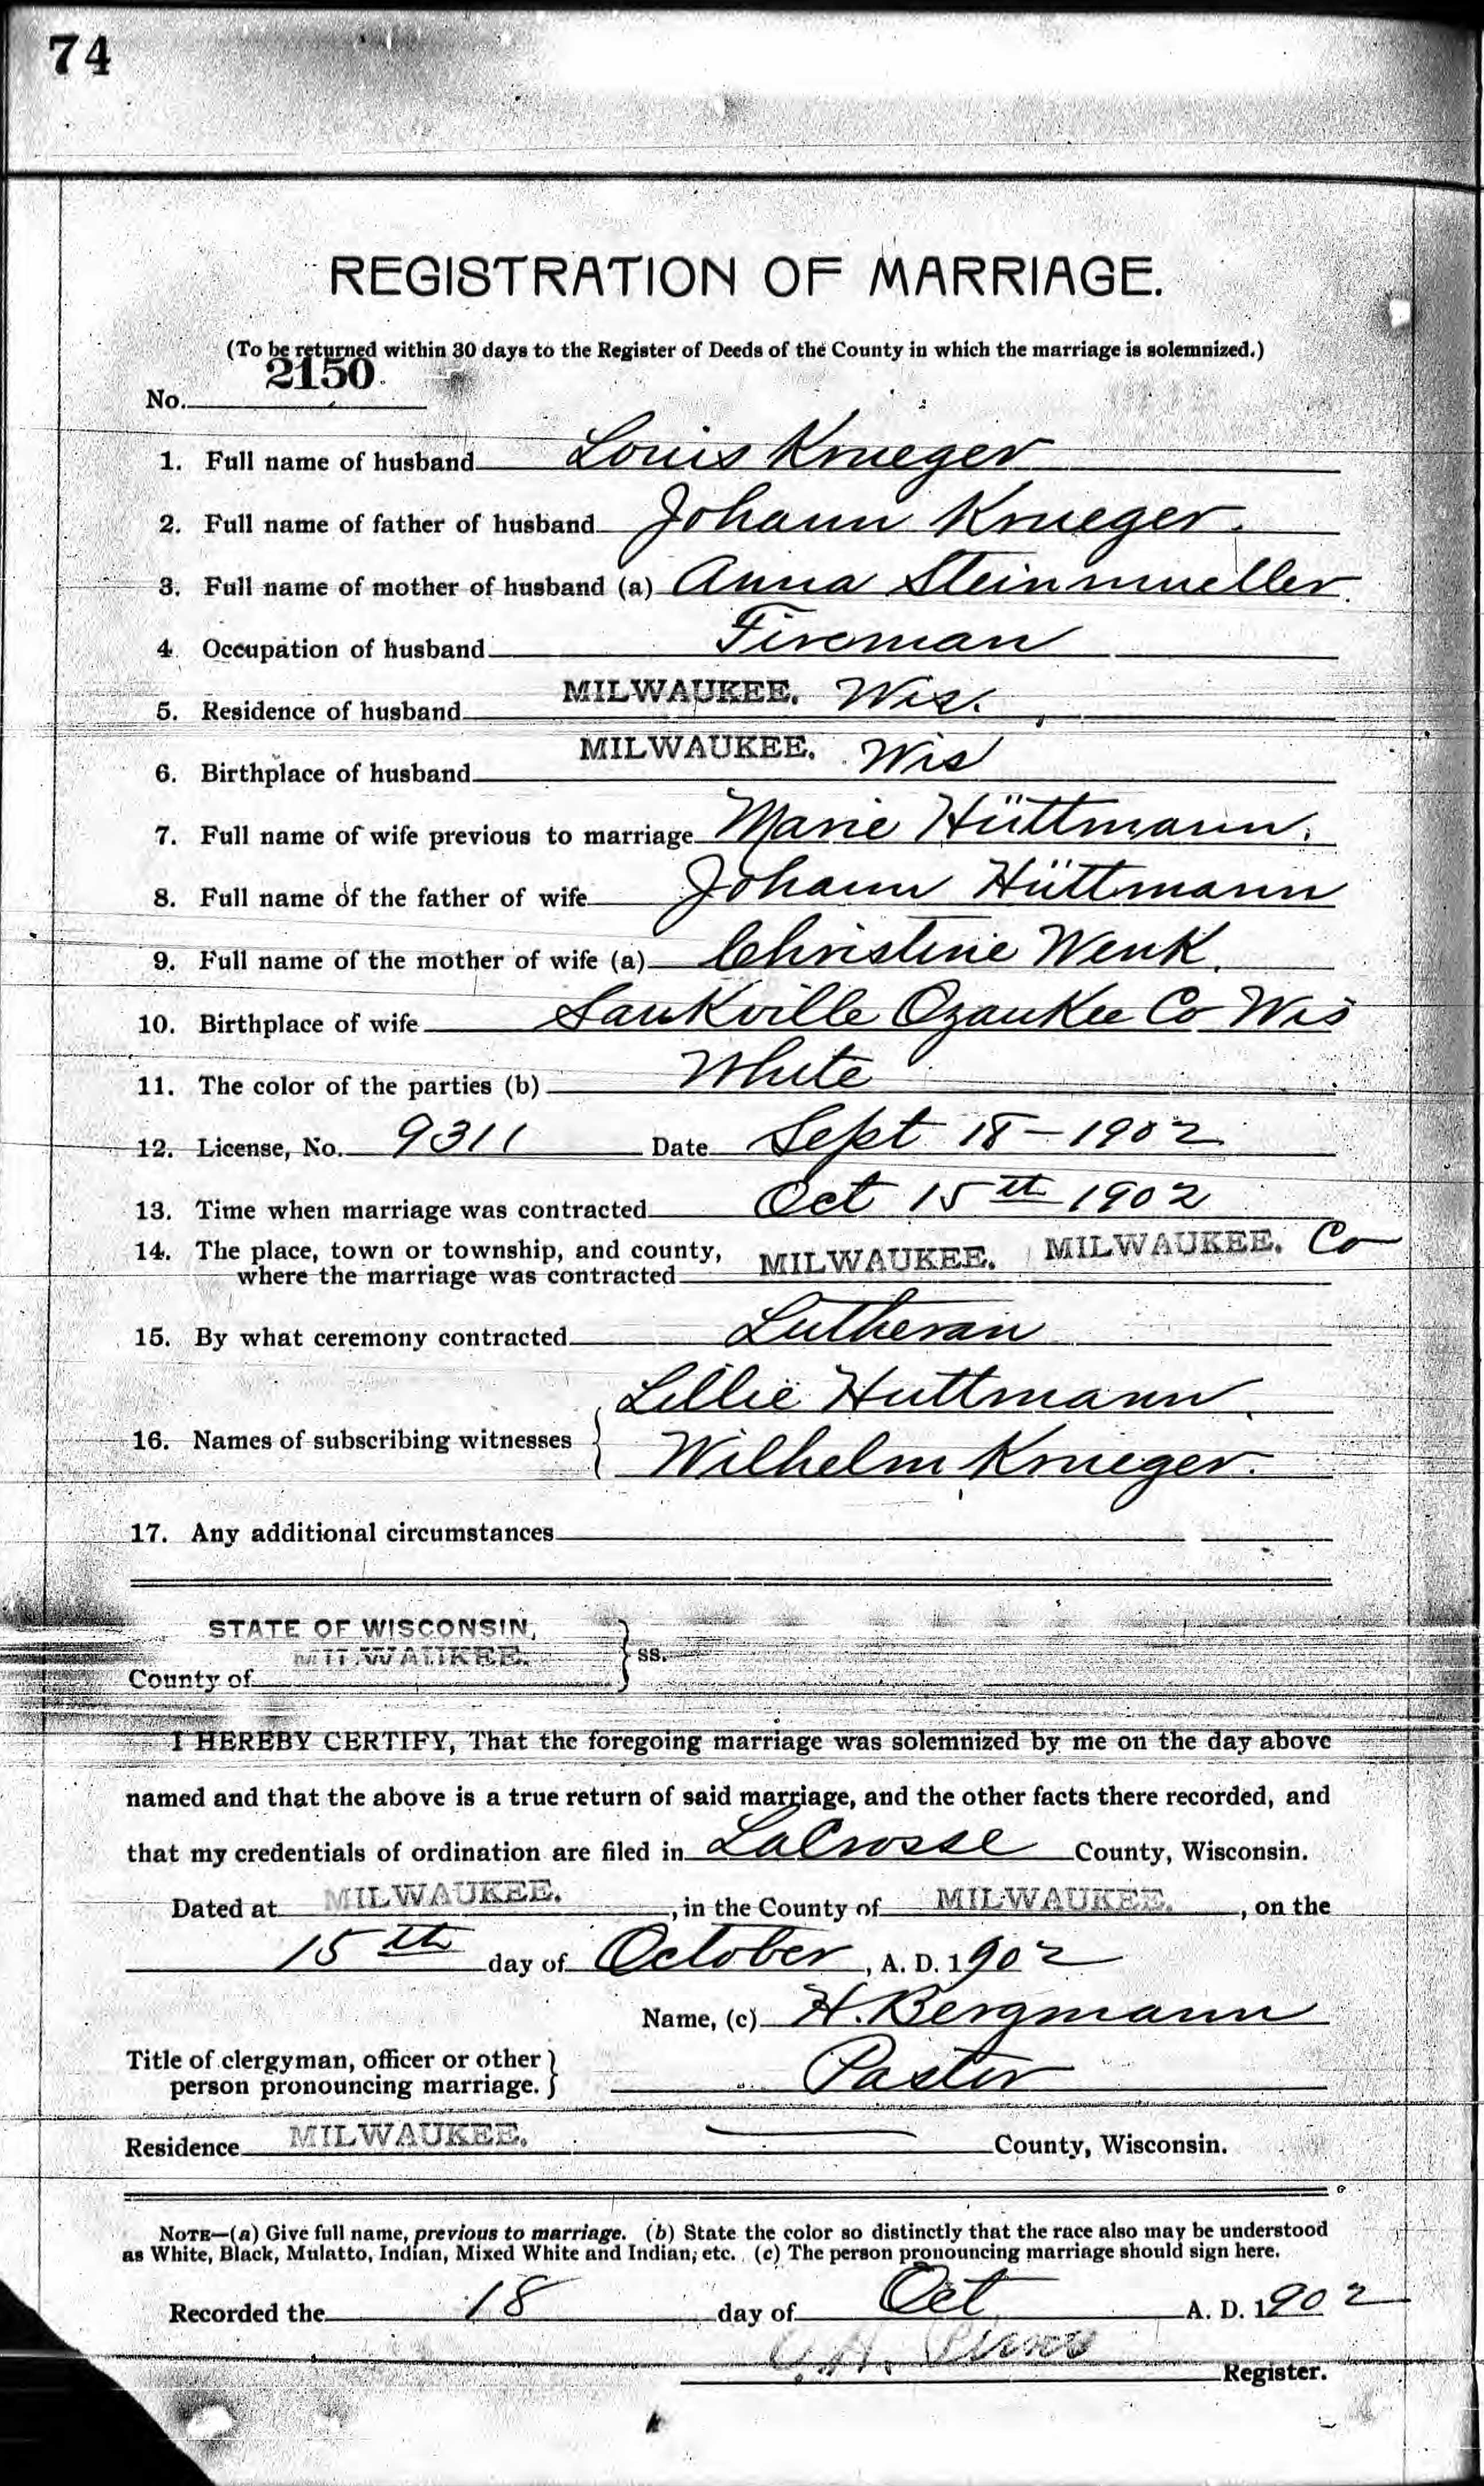 74
REGISTRATION OF MARRIAGE.
(To be returned within 30 days to the Register of Deeds of the County in which the marriage is solemnized.)
No. 2150
1. Full name of husband Louis Krueger
2. Full name of father of husband Johann Krueger.
3. Full name of mother of husband (a) Anna Steinmueller.
4. Occupation of husband Fireman
5. Residence of husband MILWAUKEE. Wis.
6. Birthplace of husband MILWAUKEE. Wis
7. Full name of wife previous to marriage Marie Hüttmann.
8. Full name of the father of wife Johann Hüttmann
9. Full name of the mother of wife (a) Christine Wenk.
10. Birthplace of wife Saukville Ozaukee Co Wis
11. The color of the parties (b) White
12. License, No. 9311 Date Sept 18-1902
13. Time when marriage was contracted Oct 15th 1902
14. The place, town or township, and county, MILWAUKEE. MILWAUKEE. Co
where the marriage was contracted
15. By what ceremony contracted Lutheran
Lillie Huttmann
16. Names of subscribing witnesses
Wilhelm Krueger.
17. Any additional circumstances
STATE OF WISCONSIN,
County of MILWAUKEE. ss.
I HEREBY CERTIFY, That the foregoing marriage was solemnized by me on the day above
named and that the above is a true return of said marriage, and the other facts there recorded, and
that my credentials of ordination are filed in LaCrosse County, Wisconsin.
Dated at MILWAUKEE., in the County of MILWAUKEE., on the
15th day of October, A. D. 1902
Name, (c) H. Bergmann
Title of clergyman, officer or other
person pronouncing marriage. Pastor
Residence MILWAUKEE. County, Wisconsin.
NOTE—(a) Give full name, previous to marriage. (b) State the color so distinctly that the race also may be understood
as White, Black, Mulatto, Indian, Mixed White and Indian, etc. (c) The person pronouncing marriage should sign here.
Recorded the 18 day of Oct A. D. 1902
Register.